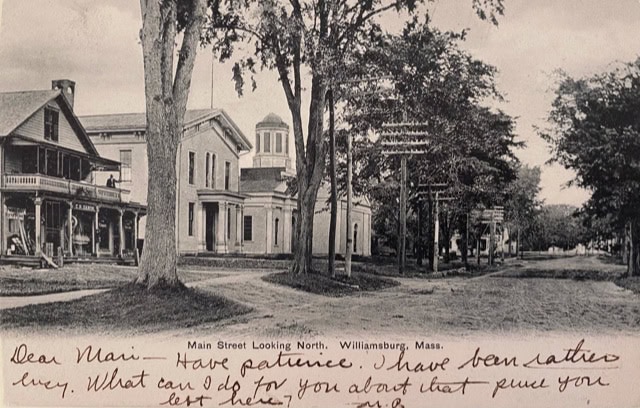 Main Street Looking North. Williamsburg, Mass.
Dear Mari — Have patience. I have been rather
busy. What can I do for you about that purse you
left here?